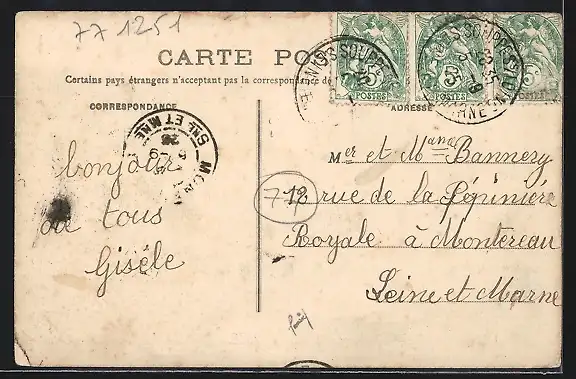 77 1251
CARTE PO
Certains pays étrangers n'acceptant pas la correspondance de
CORRESPONDANCE
ADRESSE
5
POSTES
5
POSTES
SNE ET MNE
bonjour
de tous
Gisèle
Mer et Mana Bannery
77
12 rue de la Pépinière
Royale à Montereau
Seine et Marne